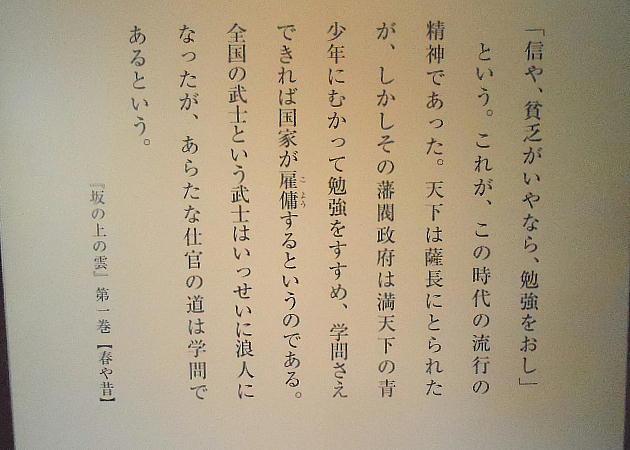 「信や、貧乏がいやなら、勉強をおし」
という。これが、この時代の流行の
精神であった。天下は薩長にとられた
が、しかしその藩閥政府は満天下の青
少年にむかって勉強をすすめ、学問さえ
できれば国家が雇傭するというのである。
こよう
全国の武士という武士はいっせいに浪人に
なったが、あらたな仕官の道は学問で
あるという。
『坂の上の雲』第一巻【春や昔】